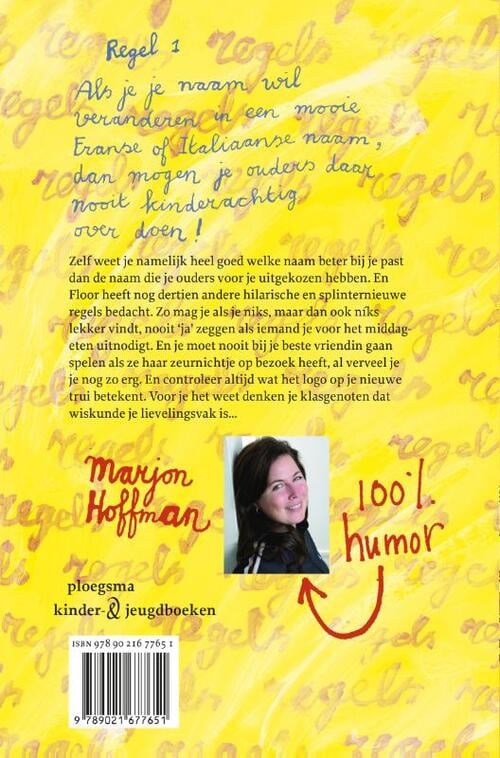 Regel 1
Als je je naam wil
veranderen in een mooie
Franse of Italiaanse naam,
dan mogen je ouders daar
nooit kinderachtig
over doen!
Zelf weet je namelijk heel goed welke naam beter bij je past
dan de naam die je ouders voor je uitgekozen hebben. En
Floor heeft nog dertien andere hilarische en splinternieuwe
regels bedacht. Zo mag je als je niks, maar dan ook níks
lekker vindt, nooit ‘ja’ zeggen als iemand je voor het middag-
eten uitnodigt. En je moet nooit bij je beste vriendin gaan
spelen als ze haar zeurnichtje op bezoek heeft, al verveel je
je nog zo erg. En controleer altijd wat het logo op je nieuwe
trui betekent. Voor je het weet denken je klasgenoten dat
wiskunde je lievelingsvak is...
Marjon
Hoffman
100%
humor
ploegsma
kinder- & jeugdboeken
ISBN 978 90 216 7765 1
9 789021 677651